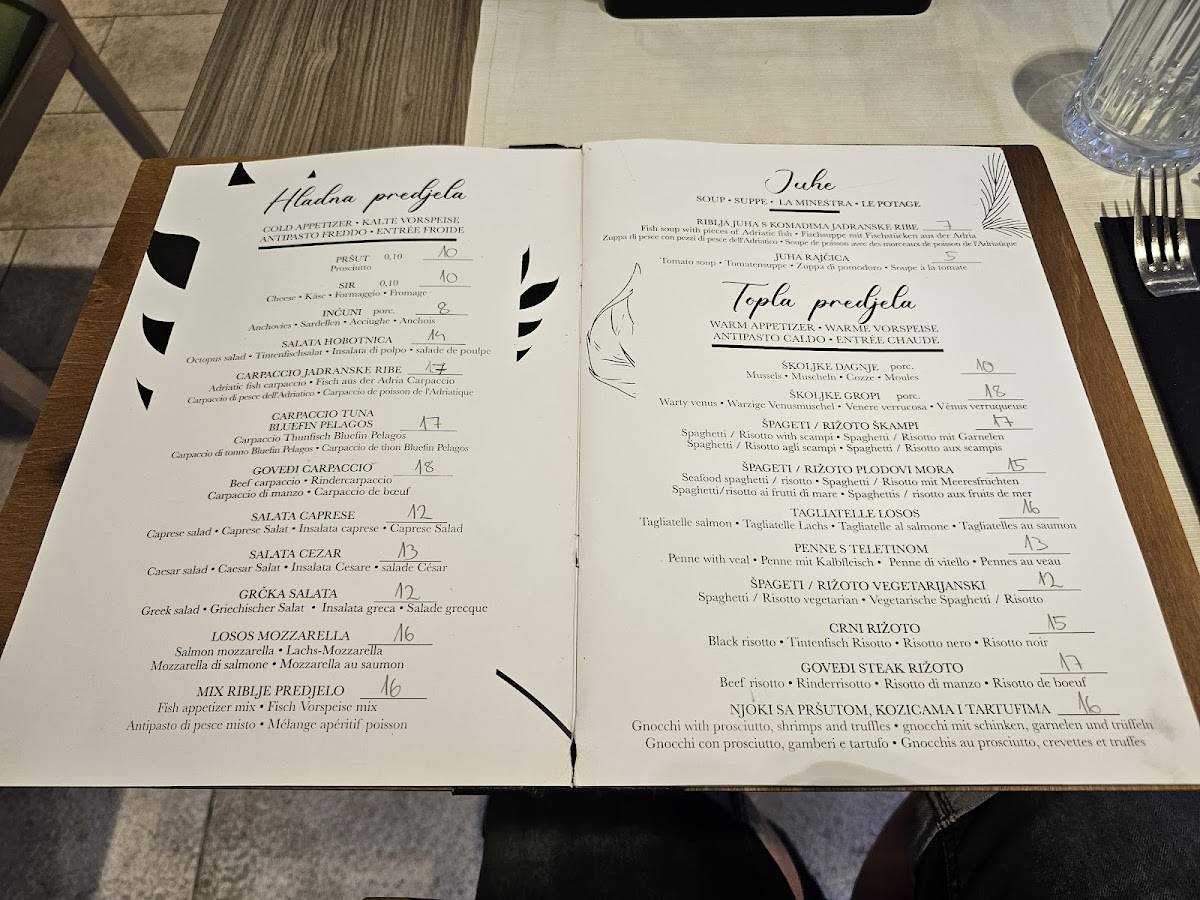 Hladna predjela
COLD APPETIZER • KALTE VORSPEISE
ANTIPASTO FREDDO • ENTRÉE FROIDE
PRŠUT 0,10 10
Prosciutto
SIR 0,10 10
Cheese • Käse • Formaggio • Fromage
INĆUNI porc. 8
Anchovies • Sardellen • Acciughe • Anchois
SALATA HOBOTNICA 14
Octopus salad • Tintenfischsalat • Insalata di polpo • salade de poulpe
CARPACCIO JADRANSKE RIBE 17
Adriatic fish carpaccio • Fisch aus der Adria Carpaccio
Carpaccio di pesce dell'Adriatico • Carpaccio de poisson de l'Adriatique
CARPACCIO TUNA
BLUEFIN PELAGOS 17
Carpaccio Thunfisch Bluefin Pelagos
Carpaccio di tonno Bluefin Pelagos • Carpaccio de thon Bluefin Pelagos
GOVEĐI CARPACCIO 18
Beef carpaccio • Rindercarpaccio
Carpaccio di manzo • Carpaccio de bœuf
SALATA CAPRESE 12
Caprese salad • Caprese Salat • Insalata caprese • Caprese Salad
SALATA CEZAR 13
Caesar salad • Caesar Salat • Insalata Cesare • salade César
GRČKA SALATA 12
Greek salad • Griechischer Salat • Insalata greca • Salade grecque
LOSOS MOZZARELLA 16
Salmon mozzarella • Lachs-Mozzarella
Mozzarella di salmone • Mozzarella au saumon
MIX RIBLJE PREDJELO 16
Fish appetizer mix • Fisch Vorspeise mix
Antipasto di pesce misto • Mélange apéritif poisson
Juhe
SOUP • SUPPE • LA MINESTRA • LE POTAGE
RIBLJA JUHA S KOMADIMA JADRANSKE RIBE 7
Fish soup with pieces of Adriatic fish • Fischsuppe mit Fischstücken aus der Adria
Zuppa di pesce con pezzi di pesce dell'Adriatico • Soupe de poisson avec des morceaux de poisson de l'Adriatique
JUHA RAJČICA 5
Tomato soup • Tomatensuppe • Zuppa di pomodoro • Soupe à la tomate
Topla predjela
WARM APPETIZER • WARME VORSPEISE
ANTIPASTO CALDO • ENTRÉE CHAUDE
ŠKOLJKE DAGNJE porc. 10
Mussels • Muscheln • Cozze • Moules
ŠKOLJKE GROPI porc. 18
Warty venus • Warzige Venusmuschel • Venere verrucosa • Vénus verruqueuse
ŠPAGETI / RIŽOTO ŠKAMPI 17
Spaghetti / Risotto with scampi • Spaghetti / Risotto mit Garnelen
Spaghetti / Risotto agli scampi • Spaghetti / Risotto aux scampis
ŠPAGETI / RIŽOTO PLODOVI MORA 15
Seafood spaghetti / risotto • Spaghetti / Risotto mit Meeresfrüchten
Spaghetti/risotto ai frutti di mare • Spaghettis / risotto aux fruits de mer
TAGLIATELLE LOSOS 16
Tagliatelle salmon • Tagliatelle Lachs • Tagliatelle al salmone • Tagliatelles au saumon
PENNE S TELETINOM 13
Penne with veal • Penne mit Kalbfleisch • Penne di vitello • Pennes au veau
ŠPAGETI / RIŽOTO VEGETARIJANSKI 12
Spaghetti / Risotto vegetarian • Vegetarische Spaghetti / Risotto
CRNI RIŽOTO 15
Black risotto • Tintenfisch Risotto • Risotto nero • Risotto noir
GOVEĐI STEAK RIŽOTO 17
Beef risotto • Rinderrisotto • Risotto di manzo • Risotto de boeuf
NJOKI SA PRŠUTOM, KOZICAMA I TARTUFIMA 16
Gnocchi with prosciutto, shrimps and truffles • gnocchi mit schinken, garnelen und trüffeln
Gnocchi con prosciutto, gamberi e tartufo • Gnocchis au prosciutto, crevettes et truffes